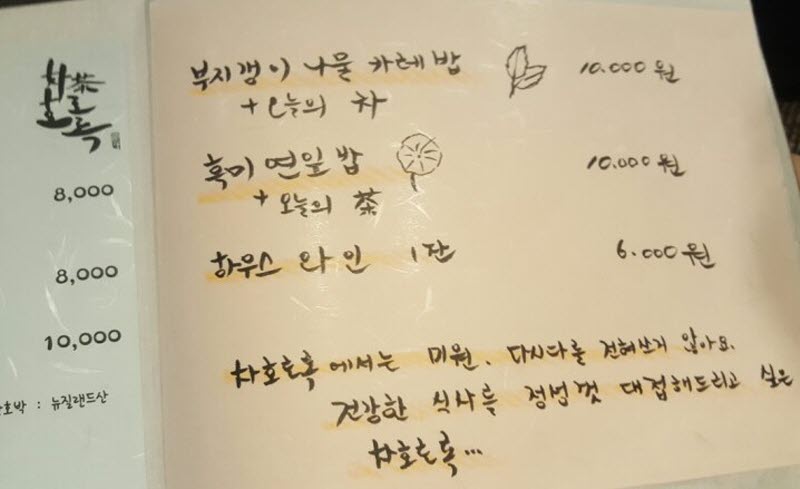 차茶호로록
8,000
8,000
10,000
호박 : 뉴질랜드산
부지갱이 나물 카레밥 10.000원
+ 오늘의 차
흑미 연잎밥 10.000원
+ 오늘의 茶
하우스 와인 1잔 6.000원
차호로록에서는 미원, 다시다를 전혀쓰지 않아요.
건강한 식사를 정성껏 대접해드리고 싶은
차호로록...